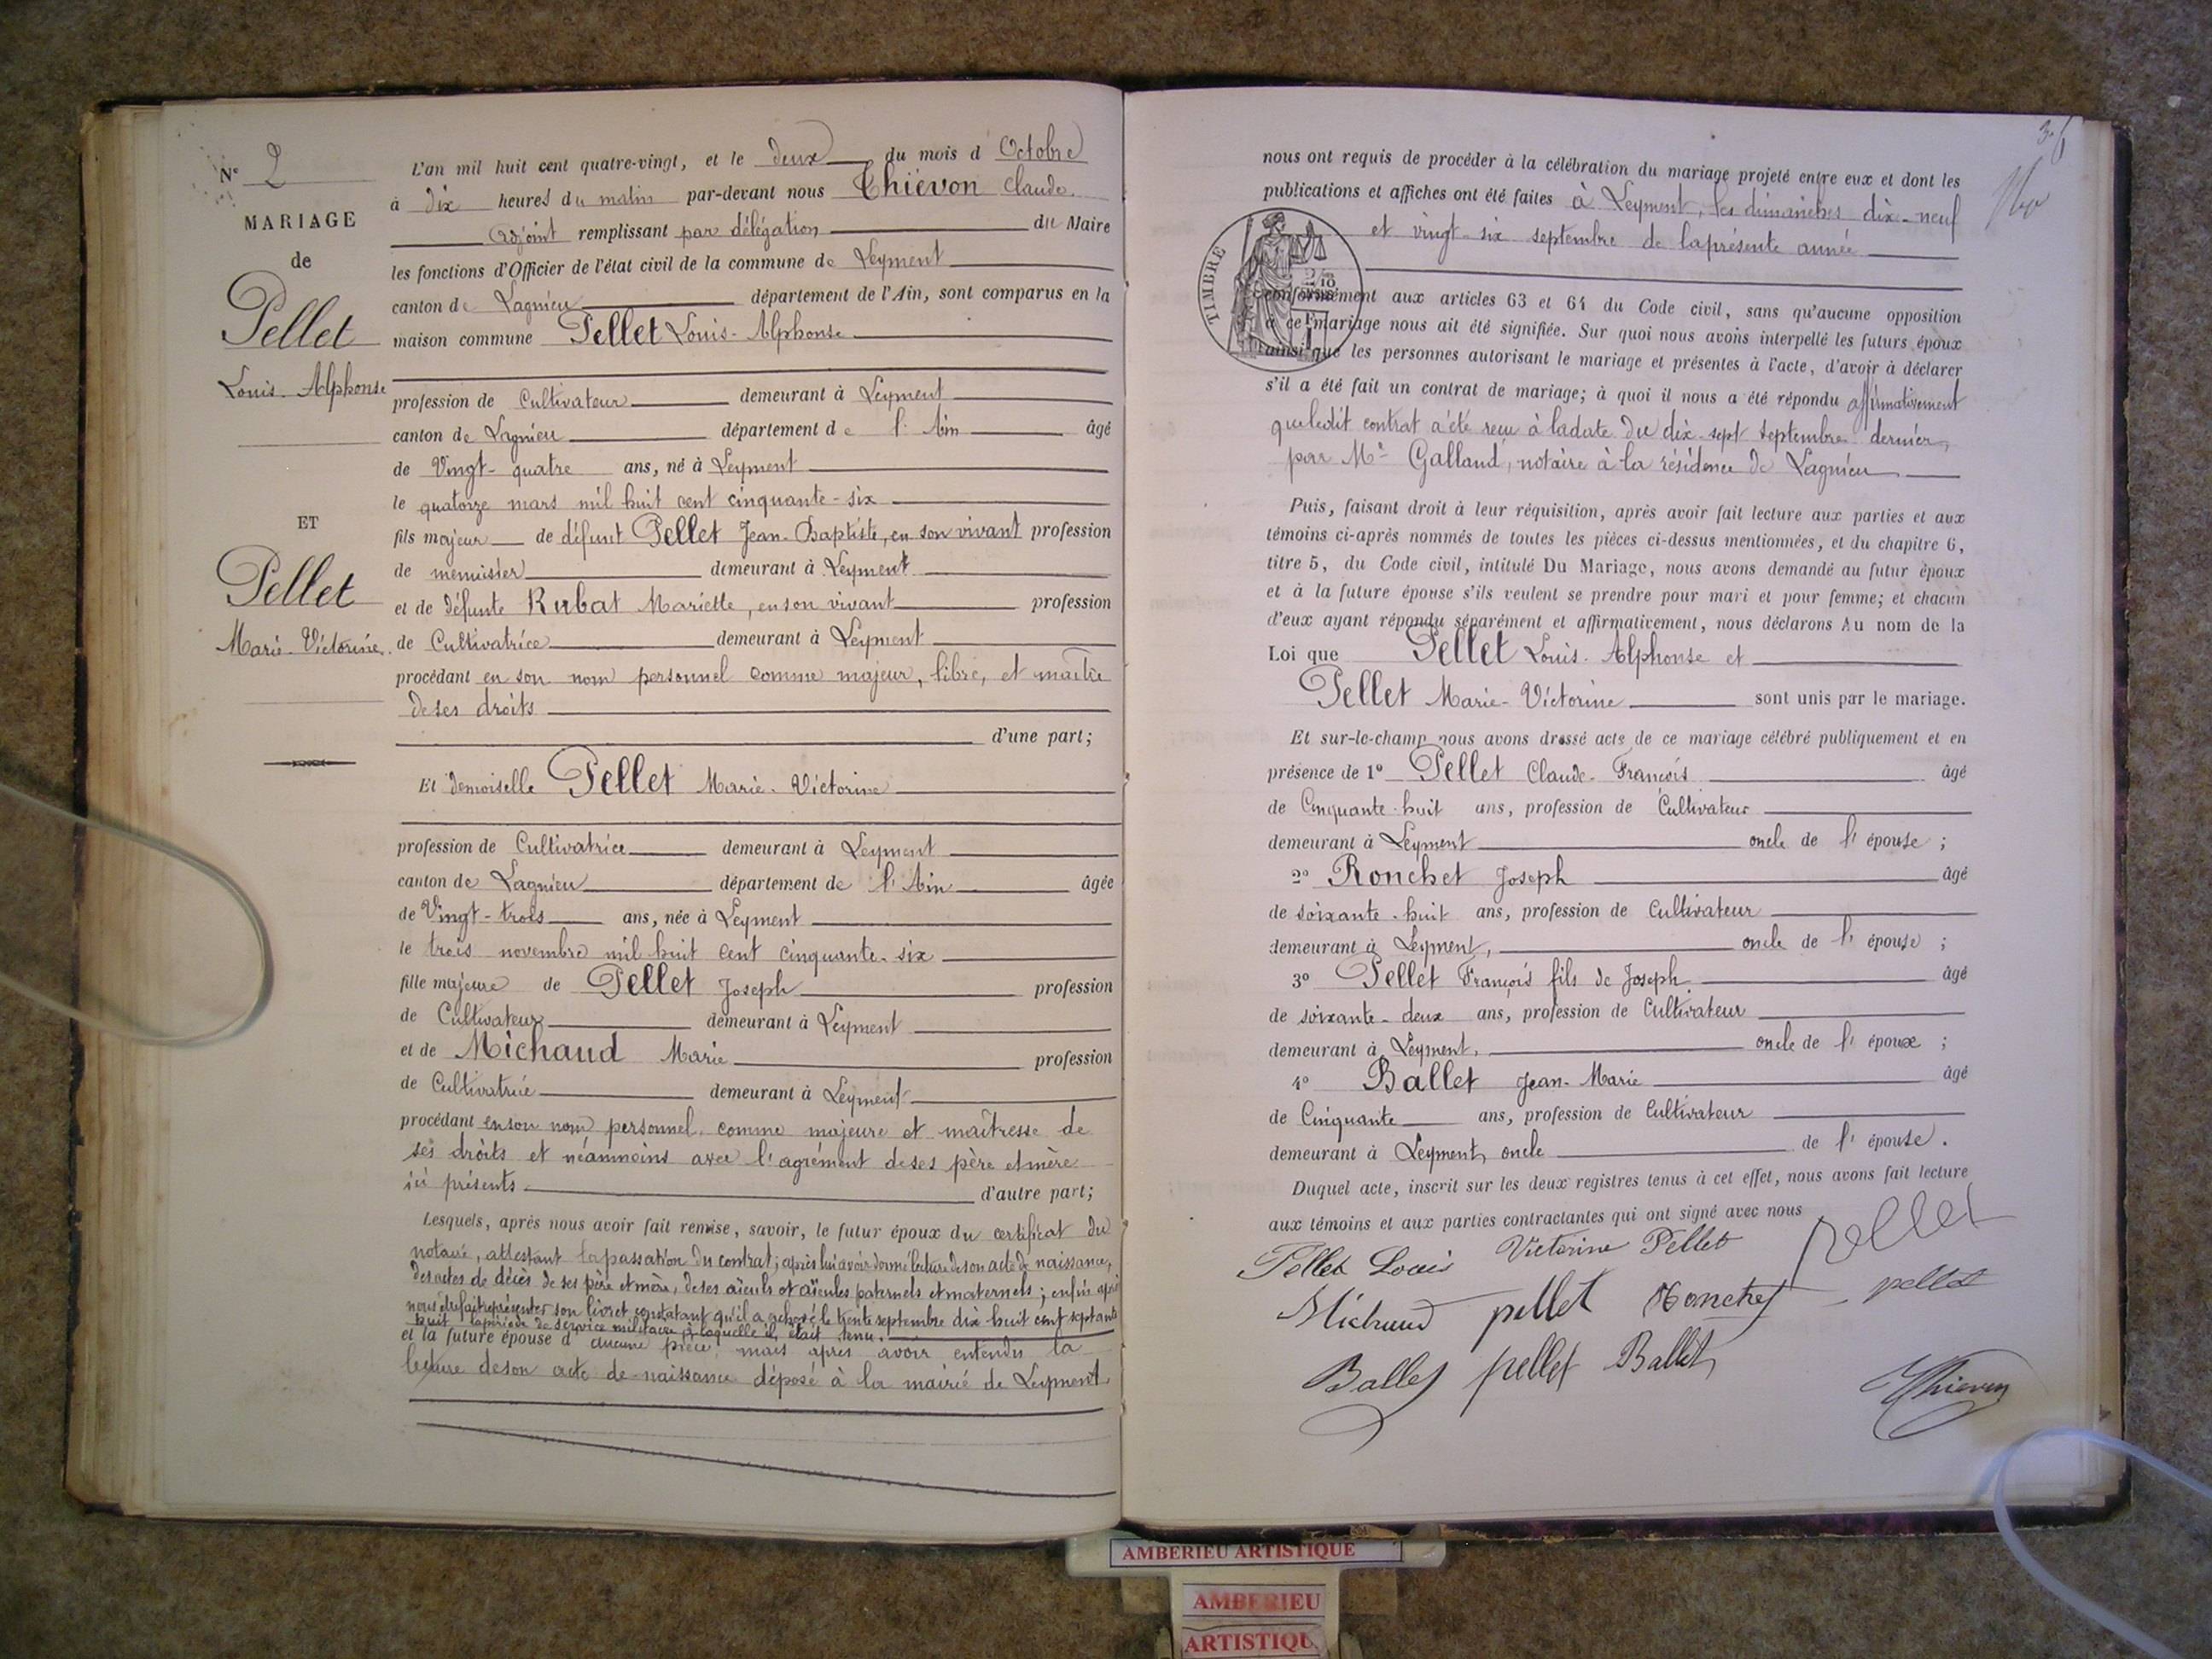 Nº 2
MARIAGE
de
Pellet
Louis-Alphonse
ET
Pellet
Marie-Victorine.
L'an mil huit cent quatre-vingt, et le deux du mois d'Octobre
à dix heures du matin par-devant nous Thiévon Claude.
Adjoint remplissant par délégation du Maire
les fonctions d'Officier de l'état civil de la commune de Leyment
canton de Lagnieu département de l'Ain, sont comparus en la
maison commune Pellet Louis-Alphonse
profession de Cultivateur demeurant à Leyment
canton de Lagnieu département de l'Ain âgé
de Vingt-quatre ans, né à Leyment
le quatorze mars mil huit cent cinquante-six
fils majeur de défunt Pellet Jean-Baptiste, en son vivant profession
de menuisier demeurant à Leyment
et de défunte Rubat Mariette, en son vivant profession
de Cultivatrice demeurant à Leyment
procédant en son nom personnel comme majeur, libre, et maître
de ses droits
d'une part;
Et demoiselle Pellet Marie-Victorine
profession de Cultivatrice demeurant à Leyment
canton de Lagnieu département de l'Ain âgée
de Vingt-trois ans, née à Leyment
le trois novembre mil huit cent cinquante-six
fille majeure de Pellet Joseph profession
de Cultivateur demeurant à Leyment
et de Michaud Marie profession
de Cultivatrice demeurant à Leyment
procédant en son nom personnel comme majeure et maîtresse de
ses droits et néanmoins avec l'agrément de ses père et mère
ici présents d'autre part;
Lesquels, après nous avoir fait remise, savoir, le futur époux du certificat du
notaire, attestant la passation du contrat; après lui avoir donné lecture de son acte de naissance,
des actes de décès de ses père et mère, de ses aïeuls et aïeules paternels et maternels; enfin après
nous être fait représenter son livret constatant qu'il a achevé le trente septembre dix huit cent septante
huit la période de service militaire à laquelle il était tenu.
et la future épouse d'aucune pièce, mais après avoir entendu la
lecture de son acte de naissance déposé à la mairie de Leyment
nous ont requis de procéder à la célébration du mariage projeté entre eux et dont les
publications et affiches ont été faites à Leyment, les dimanches dix-neuf
et vingt-six septembre de la présente année
TIMBRE
conformément aux articles 63 et 64 du Code civil, sans qu'aucune opposition
à ce mariage nous ait été signifiée. Sur quoi nous avons interpellé les futurs époux
ainsi que les personnes autorisant le mariage et présentes à l'acte, d'avoir à déclarer
s'il a été fait un contrat de mariage; à quoi il nous a été répondu affirmativement
que ledit contrat a été reçu à la date du dix-sept septembre dernier,
par Me Galland, notaire à la résidence de Lagnieu
Puis, faisant droit à leur réquisition, après avoir fait lecture aux parties et aux
témoins ci-après nommés de toutes les pièces ci-dessus mentionnées, et du chapitre 6,
titre 5, du Code civil, intitulé Du Mariage, nous avons demandé au futur époux
et à la future épouse s'ils veulent se prendre pour mari et pour femme; et chacun
d'eux ayant répondu séparément et affirmativement, nous déclarons Au nom de la
Loi que Pellet Louis-Alphonse et
Pellet Marie-Victorine sont unis par le mariage.
Et sur-le-champ nous avons dressé acte de ce mariage célébré publiquement et en
présence de 1º Pellet Claude-François âgé
de Cinquante-huit ans, profession de Cultivateur
demeurant à Leyment oncle de l'épouse;
2º Ronchet Joseph âgé
de soixante-huit ans, profession de Cultivateur
demeurant à Leyment, oncle de l'épouse;
3º Pellet François fils de Joseph âgé
de soixante-deux ans, profession de Cultivateur
demeurant à Leyment, oncle de l'époux;
4º Ballet Jean-Marie âgé
de Cinquante ans, profession de Cultivateur
demeurant à Leyment, oncle de l'épouse.
Duquel acte, inscrit sur les deux registres tenus à cet effet, nous avons fait lecture
aux témoins et aux parties contractantes qui ont signé avec nous
Pellet Louis Victorine Pellet pellet
Michaud pellet Ronchet pellet
Ballet pellet Ballet
Thiévon
AMBERIEU ARTISTIQUE
AMBERIEU
ARTISTIQU